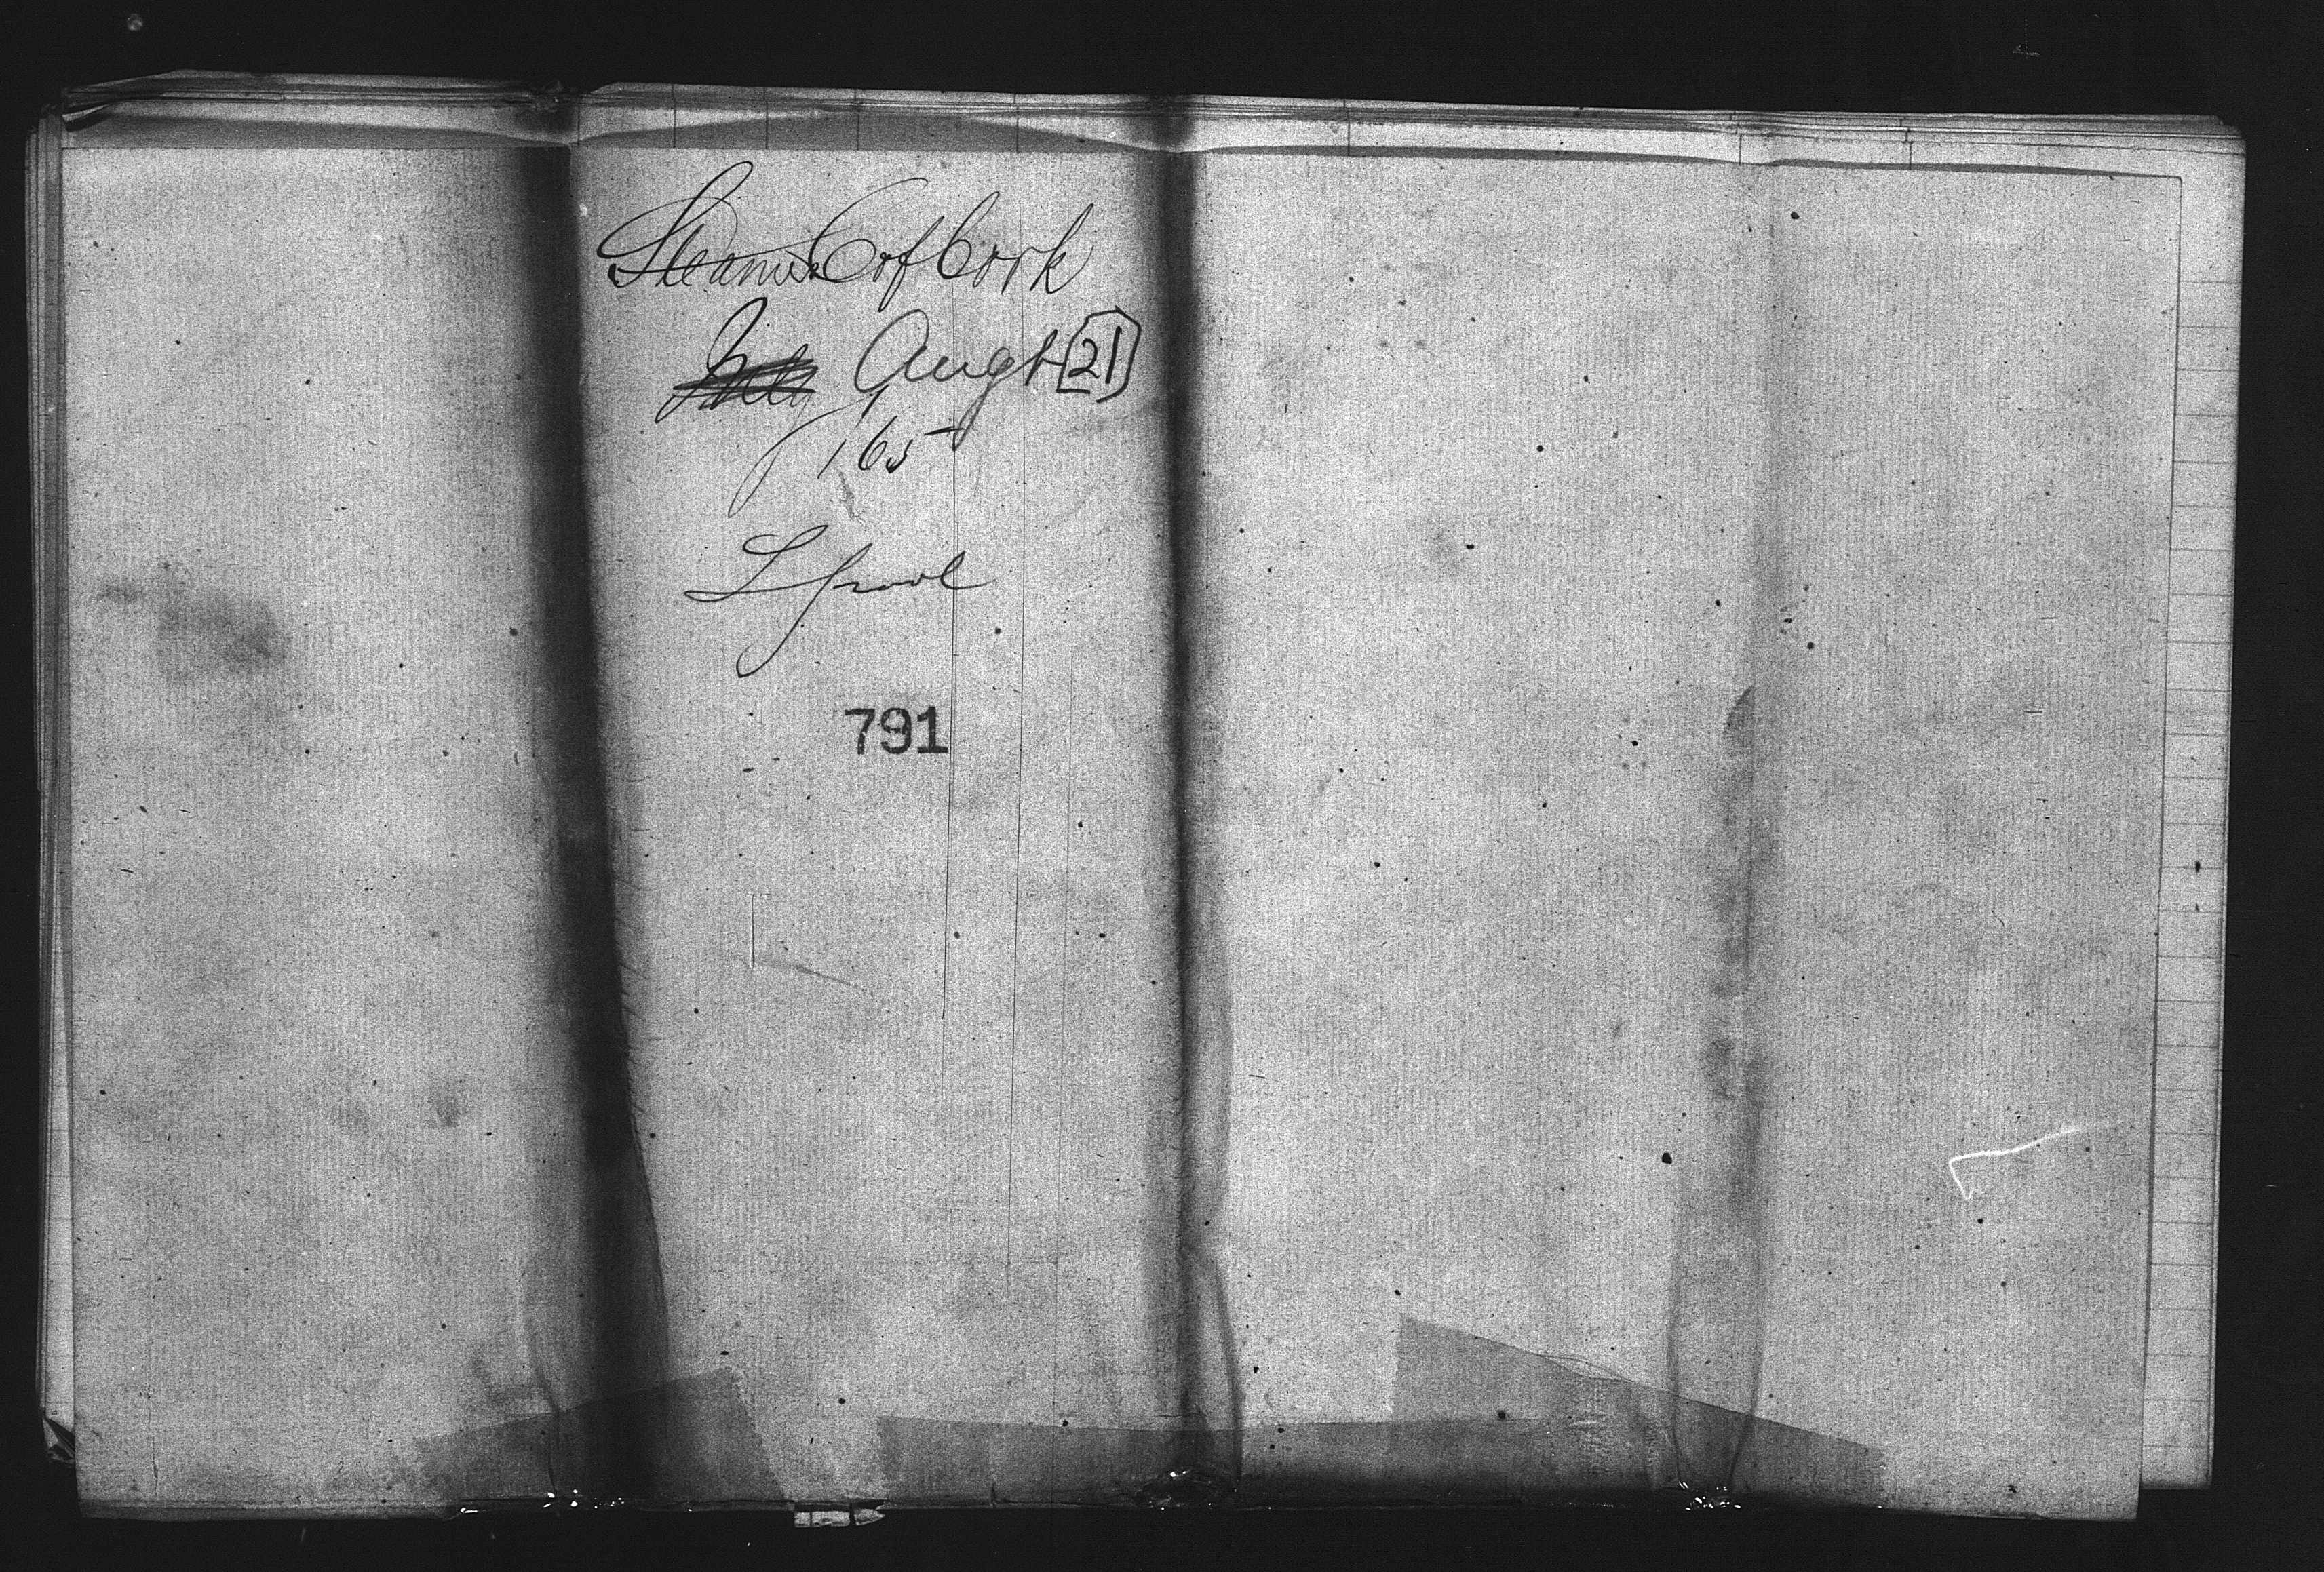 Steams. C of Cork
July Augt 21
/65
Lpool
791